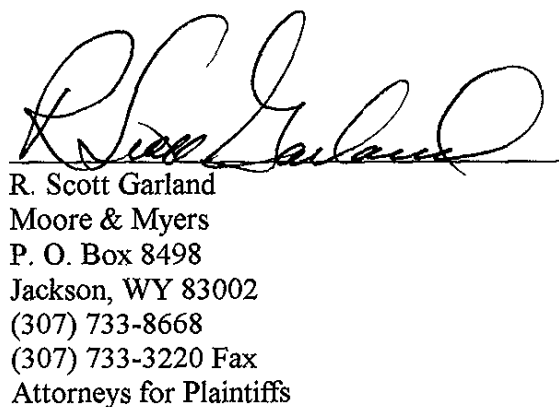 R. Scott Garland
R. Scott Garland
Moore & Myers
P. O. Box 8498
Jackson, WY 83002
(307) 733-8668
(307) 733-3220 Fax
Attorneys for Plaintiffs